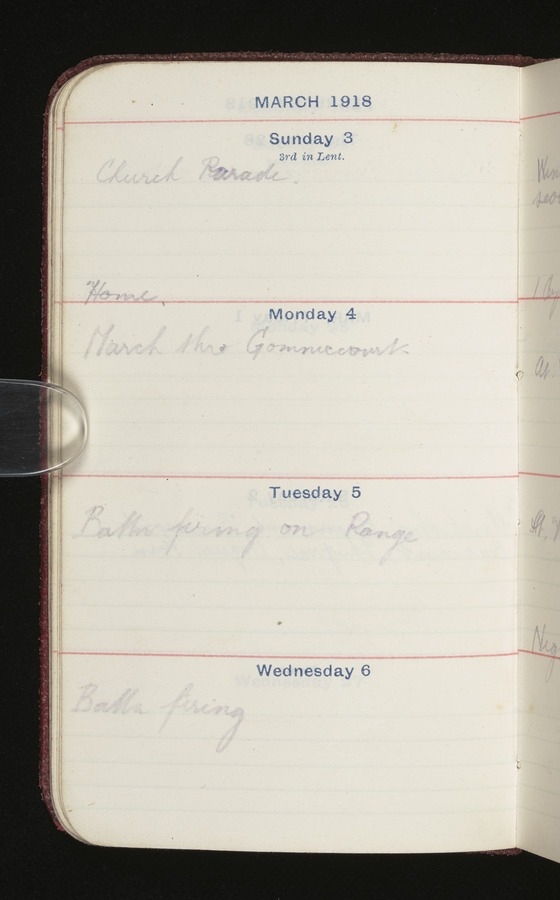 MARCH 1918
Sunday 3
3rd in Lent.
Church Parade.
Home.
Monday 4
March thro Gommecourt
Tuesday 5
Battn firing on Range
Wednesday 6
Battn firing